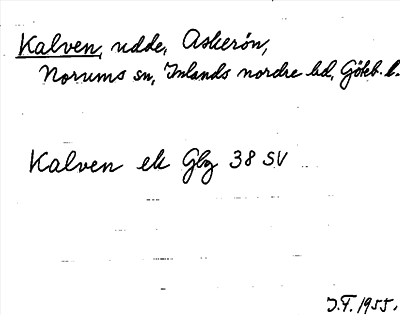 Kalven, udde, Askerön,
Norums sn, Inlands nordre hd, Göteb. l.
Kalven ek Gbg 38 SV
J.F. 1955.